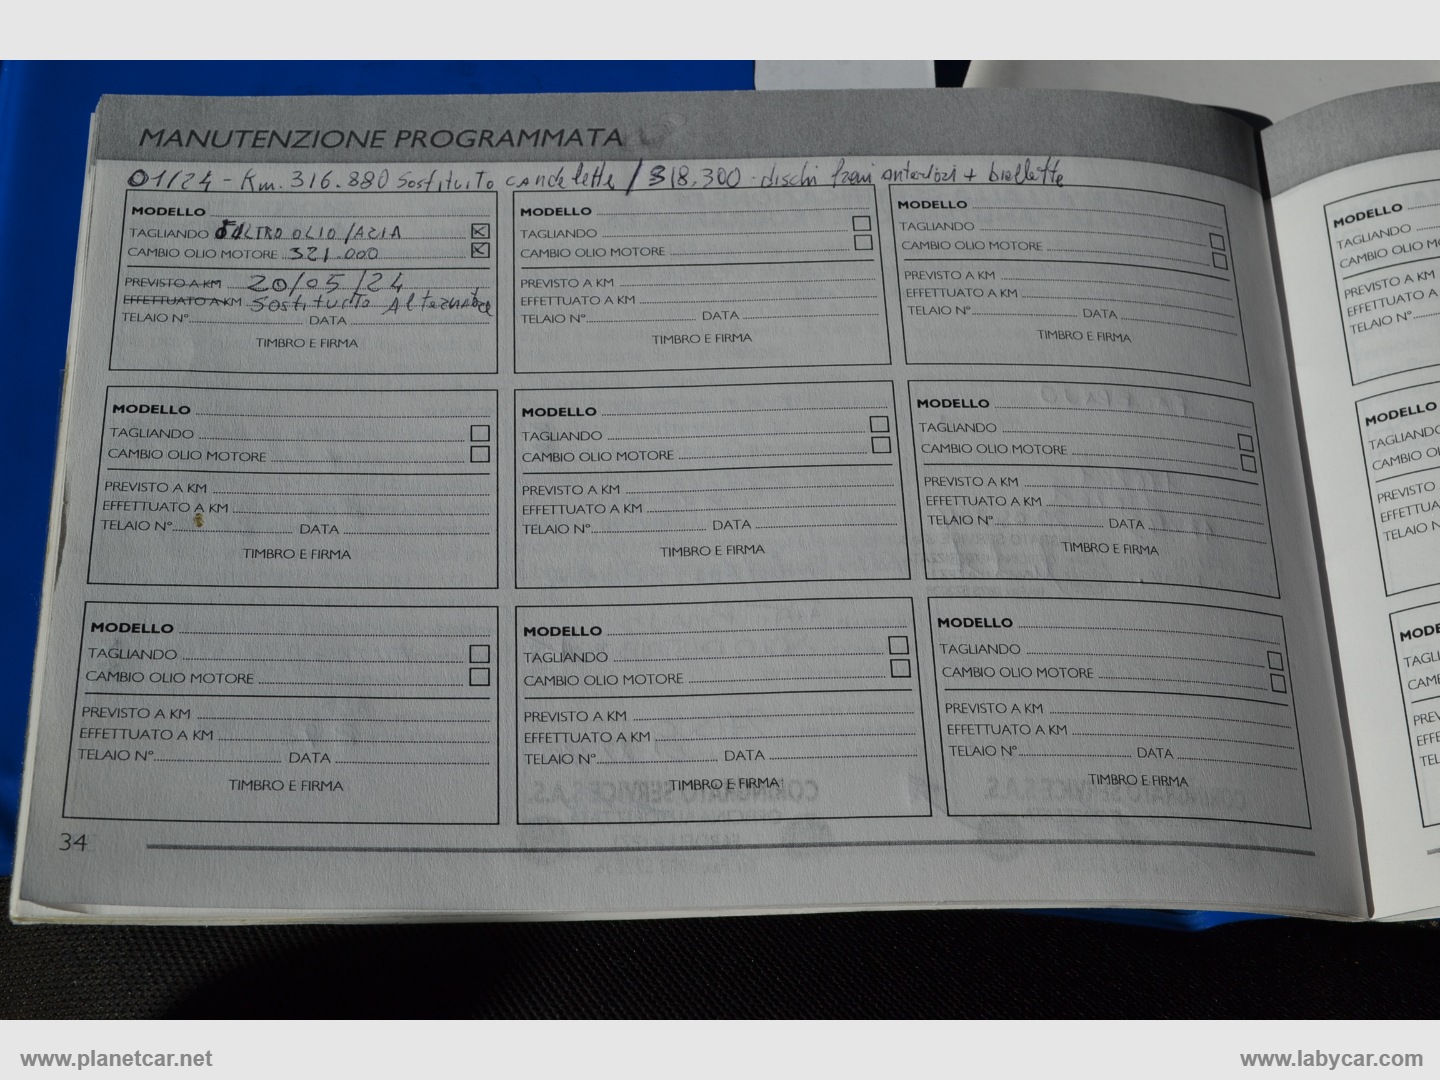 MANUTENZIONE PROGRAMMATA
01/24 - Km. 316.880 Sostituito candelette / 318.300 - dischi freni anteriori + biellette
MODELLO
TAGLIANDO FILTRO OLIO/ARIA
CAMBIO OLIO MOTORE 321.000
PREVISTO A KM 20/05/24
EFFETTUATO A KM Sostituito Alternatore
TELAIO N° DATA
TIMBRO E FIRMA
MODELLO
TAGLIANDO
CAMBIO OLIO MOTORE
PREVISTO A KM
EFFETTUATO A KM
TELAIO N° DATA
TIMBRO E FIRMA
MODELLO
TAGLIANDO
CAMBIO OLIO MOTORE
PREVISTO A KM
EFFETTUATO A KM
TELAIO N° DATA
TIMBRO E FIRMA
MODELLO
TAGLIANDO
CAMBIO OLIO MOTORE
PREVISTO A KM
EFFETTUATO A KM
TELAIO N° DATA
TIMBRO E FIRMA
MODELLO
TAGLIANDO
CAMBIO OLIO MOTORE
PREVISTO A KM
EFFETTUATO A KM
TELAIO N° DATA
TIMBRO E FIRMA
MODELLO
TAGLIANDO
CAMBIO OLIO MOTORE
PREVISTO A KM
EFFETTUATO A KM
TELAIO N° DATA
TIMBRO E FIRMA
MODELLO
TAGLIANDO
CAMBIO OLIO MOTORE
PREVISTO A KM
EFFETTUATO A KM
TELAIO N° DATA
TIMBRO E FIRMA
MODELLO
TAGLIANDO
CAMBIO OLIO MOTORE
PREVISTO A KM
EFFETTUATO A KM
TELAIO N° DATA
TIMBRO E FIRMA
MODELLO
TAGLIANDO
CAMBIO OLIO MOTORE
PREVISTO A KM
EFFETTUATO A KM
TELAIO N° DATA
TIMBRO E FIRMA
34
MODELLO
TAGLIANDO
CAMBIO OLIO MO
PREVISTO A KM
EFFETTUATO A
TELAIO N°
MODELLO
TAGLIANDO
CAMBIO OL
PREVISTO
EFFETTUA
TELAIO N
MODE
TAGLI
CAMB
PREV
EFFE
TEL
www.planetcar.net
www.labycar.com